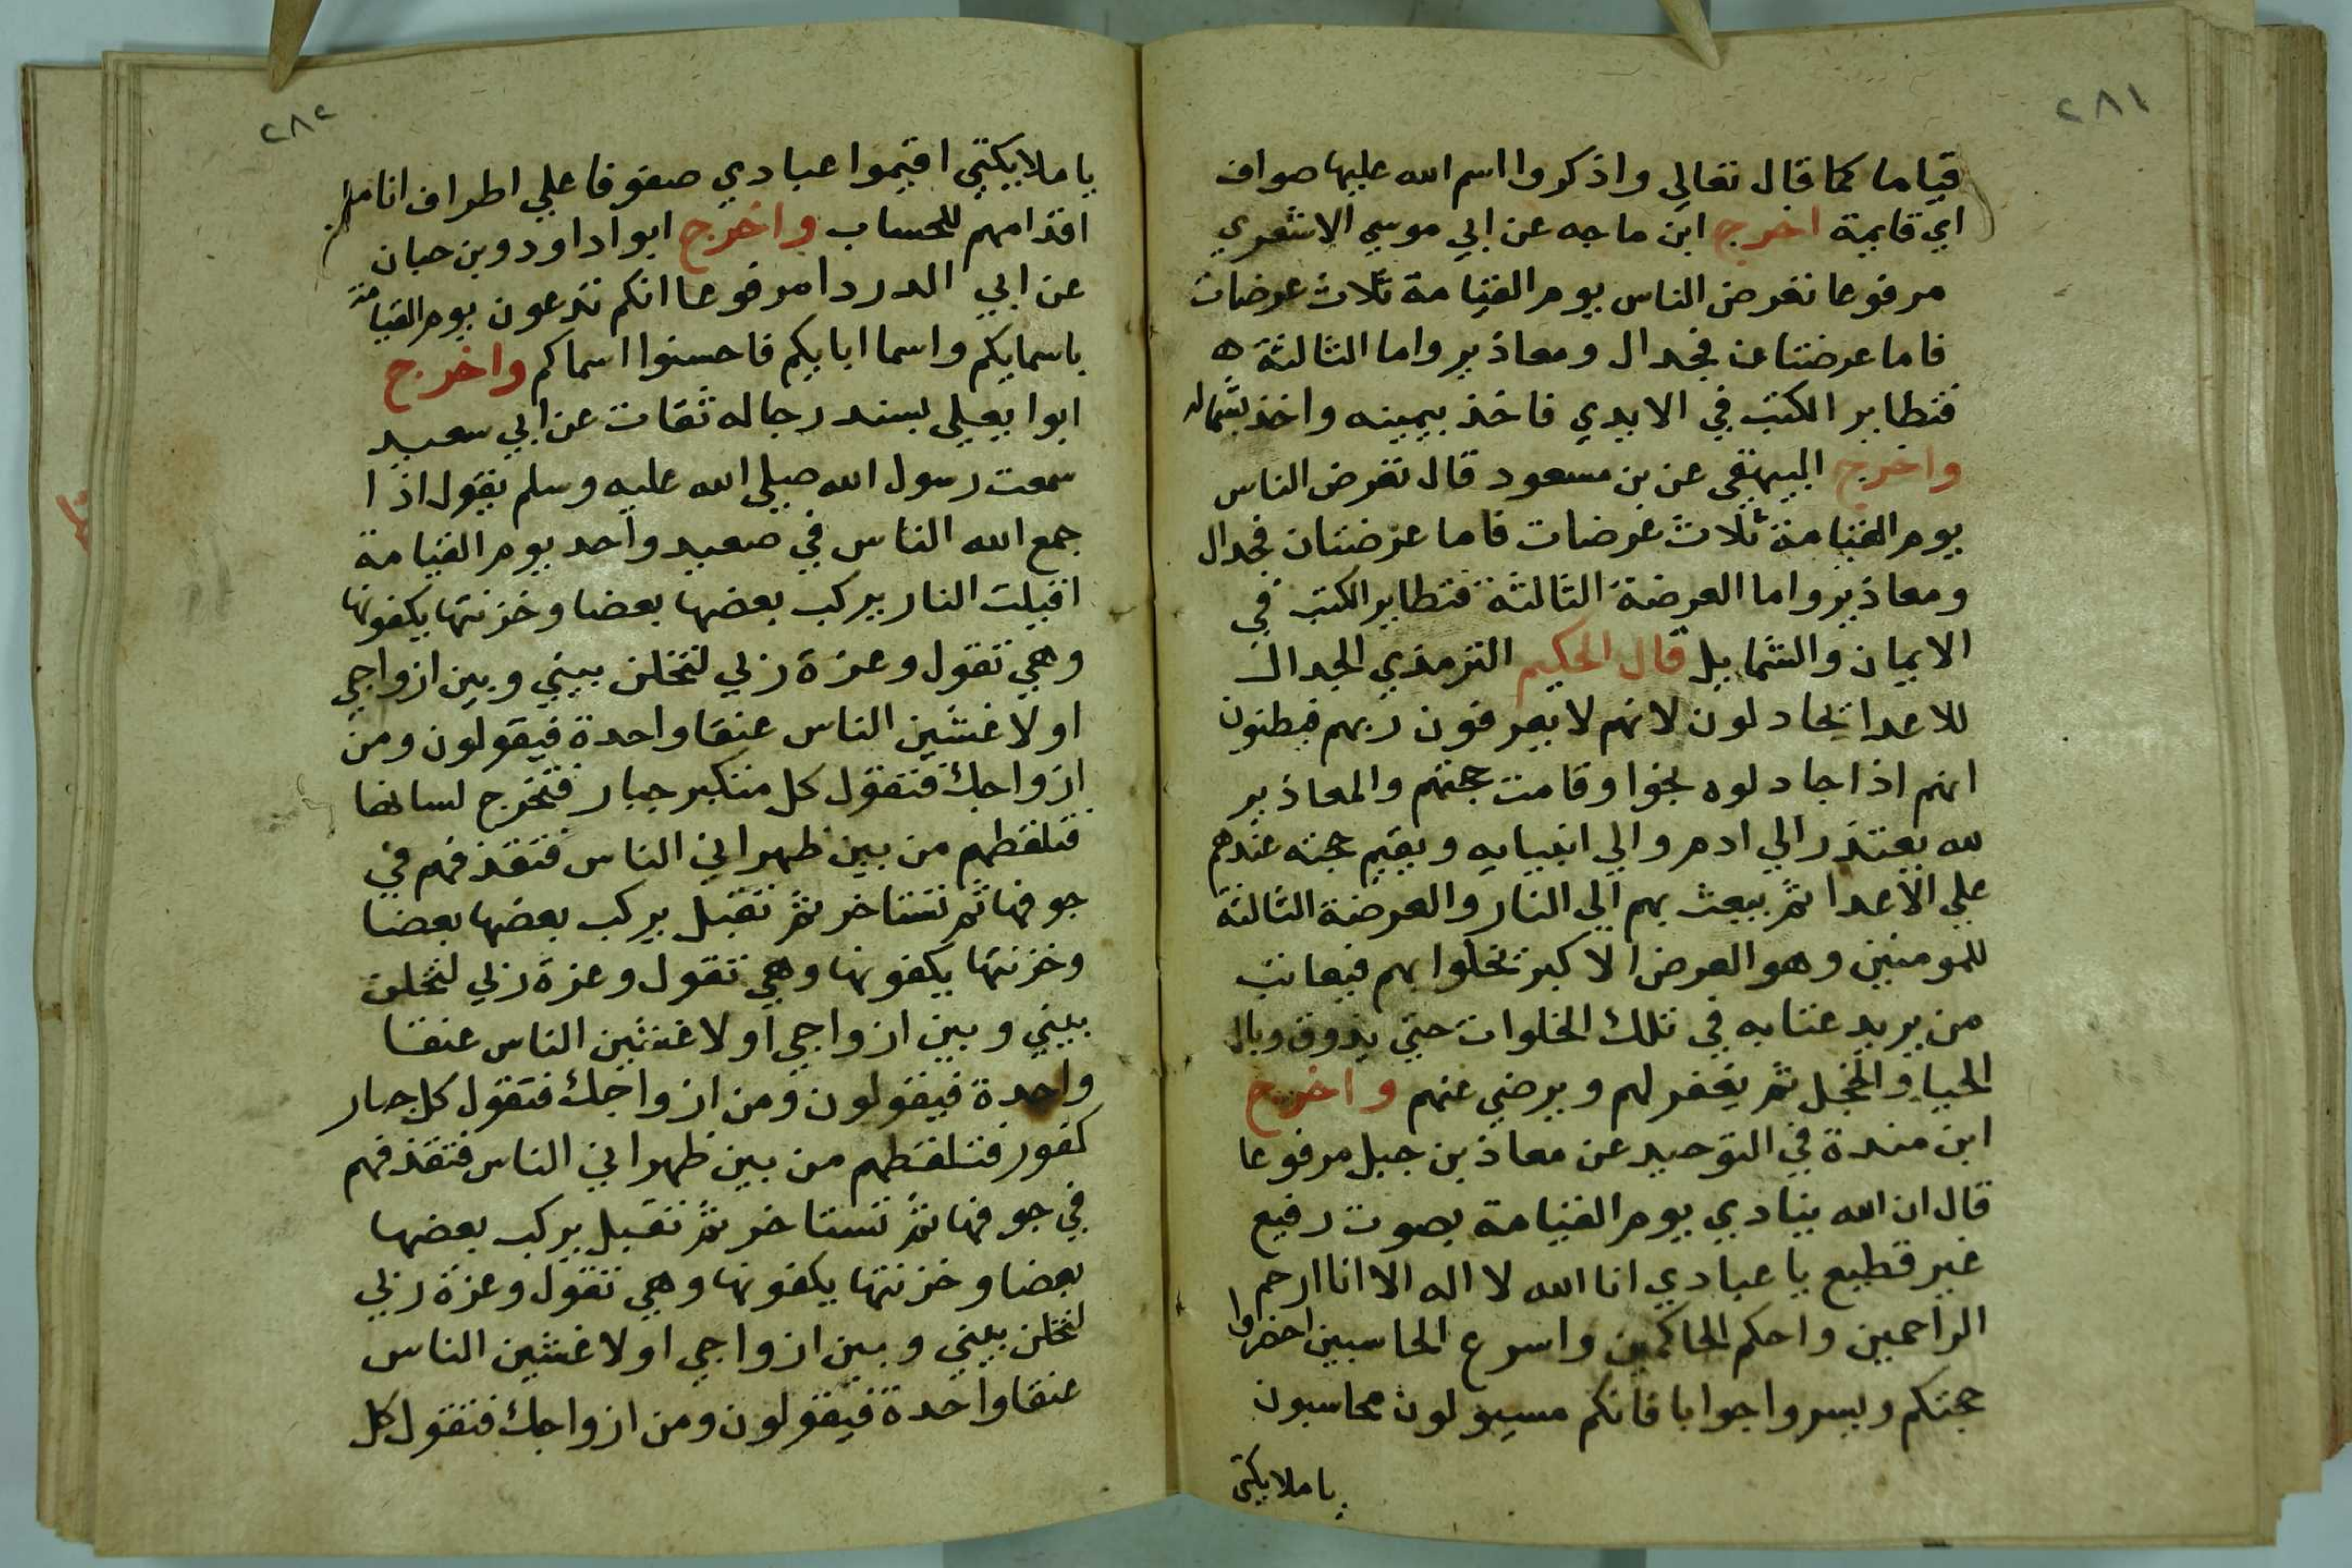 ٢٨١
قياما كما قال تعالي واذكروا اسم الله عليها صواف
اي قايمة اخرج ابن ماجه عن ابي موسي الاشعري
مرفوعا تعرض الناس يوم القيامة ثلاث عرضات
فاما عرضتان فجدال ومعاذير واما الثالثة ه
فتطاير الكتب في الايدي فاخذ بيمينه واخذ بشماله
واخرج البيهقي عن بن مسعود قال تعرض الناس
يوم القيامة ثلاث عرضات فاما عرضتان فجدال
ومعاذير واما العرضة الثالثة فتطاير الكتب في
الايمان والشمايل قال الحكيم الترمذي الجدال
للاعدا يجادلون لانهم لا يعرفون ربهم فيظنون
انهم اذا جادلوه نجوا وقامت حجتهم والمعاذير
لله يعتذر الي ادم والي انبيايه ويقيم حجته عندهم
علي الاعدا ثم يبعث بهم الي النار والعرضة الثالثة
للمومنين وهو العرض الاكبر تخلوا بهم فيعاتب
من يريد عتابه في تلك الخلوات حتي يذوق وبال
الحيا والخجل ثم يغفر لهم ويرضي عنهم واخرج
ابن مندة في التوحيد عن معاذ بن جبل مرفوعا
قال ان الله ينادي يوم القيامة بصوت رفيع
غير قطيع يا عبادي انا الله لا اله الا انا ارحم
الراحمين واحكم الحاكمين واسرع الحاسبين احضروا
حجتكم ويسروا جوابا فانكم مسيولون محاسبون
يا ملايكتي
٢٨٢
يا ملايكتي اقيموا عبادي صفوفا علي اطراف انامل
اقدامهم للحساب واخرج ابوا داود وبن حبان
عن ابي الدردا مرفوعا انكم تدعون يوم القيامة
باسمايكم واسما ابايكم فاحسنوا اسماكم واخرج
ابوا يعيلي بسند رجاله ثقات عن ابي سعيد
سمعت رسول الله صيلي الله عليه وسلم يقول اذا
جمع الله الناس في صعيد واحد يوم القيامة
اقبلت النار يركب بعضها بعضا وخزنتها يكفونها
وهي تقول وعزة ربي لتخلن بيني وبين ازواجي
او لا غشين الناس عنقا واحدة فيقولون ومن
ازواجك فتقول كل متكبر جبار فتخرج لسانها
فتلقطهم من بين ظهراني الناس فتقذفهم في
جوفها ثم تستاخر ثم تقبل يركب بعضها بعضا
وخزنتها يكفونها وهي تقول وعزة ربي لتخلن
بيني وبين ازواجي او لا غشين الناس عنقا
واحدة فيقولون ومن ازواجك فتقول كل جبار
كفور فتلقطهم من بين ظهراني الناس فتقذفهم
في جوفها ثم تستاخر ثم تقبل يركب بعضها
بعضا وخزنتها يكفونها وهي تقول وعزة ربي
لتخلن بيني وبين ازواجي او لا غشين الناس
عنقا واحدة فيقولون ومن ازواجك فتقول كل